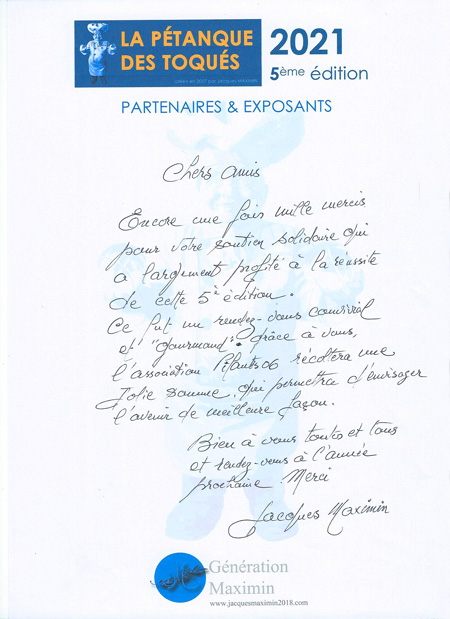 LA PÉTANQUE
DES TOQUÉS
2021
5ème édition
PARTENAIRES & EXPOSANTS
Chers amis
Encore une fois mille mercis
pour votre soutien solidaire qui
a largement profité à la réussite
de cette 5è édition.
Ce fut un rendez-vous convivial
et "gourmand". Grâce à vous,
l'association Pitantis06 récoltera une
Jolie somme qui permettra d'envisager
l'avenir de meilleure façon.
Bien à vous toutes et tous
et rendez-vous à l'année
prochaine. Merci
Jacques Maximin
Génération
Maximin
www.jacquesmaximin2018.com